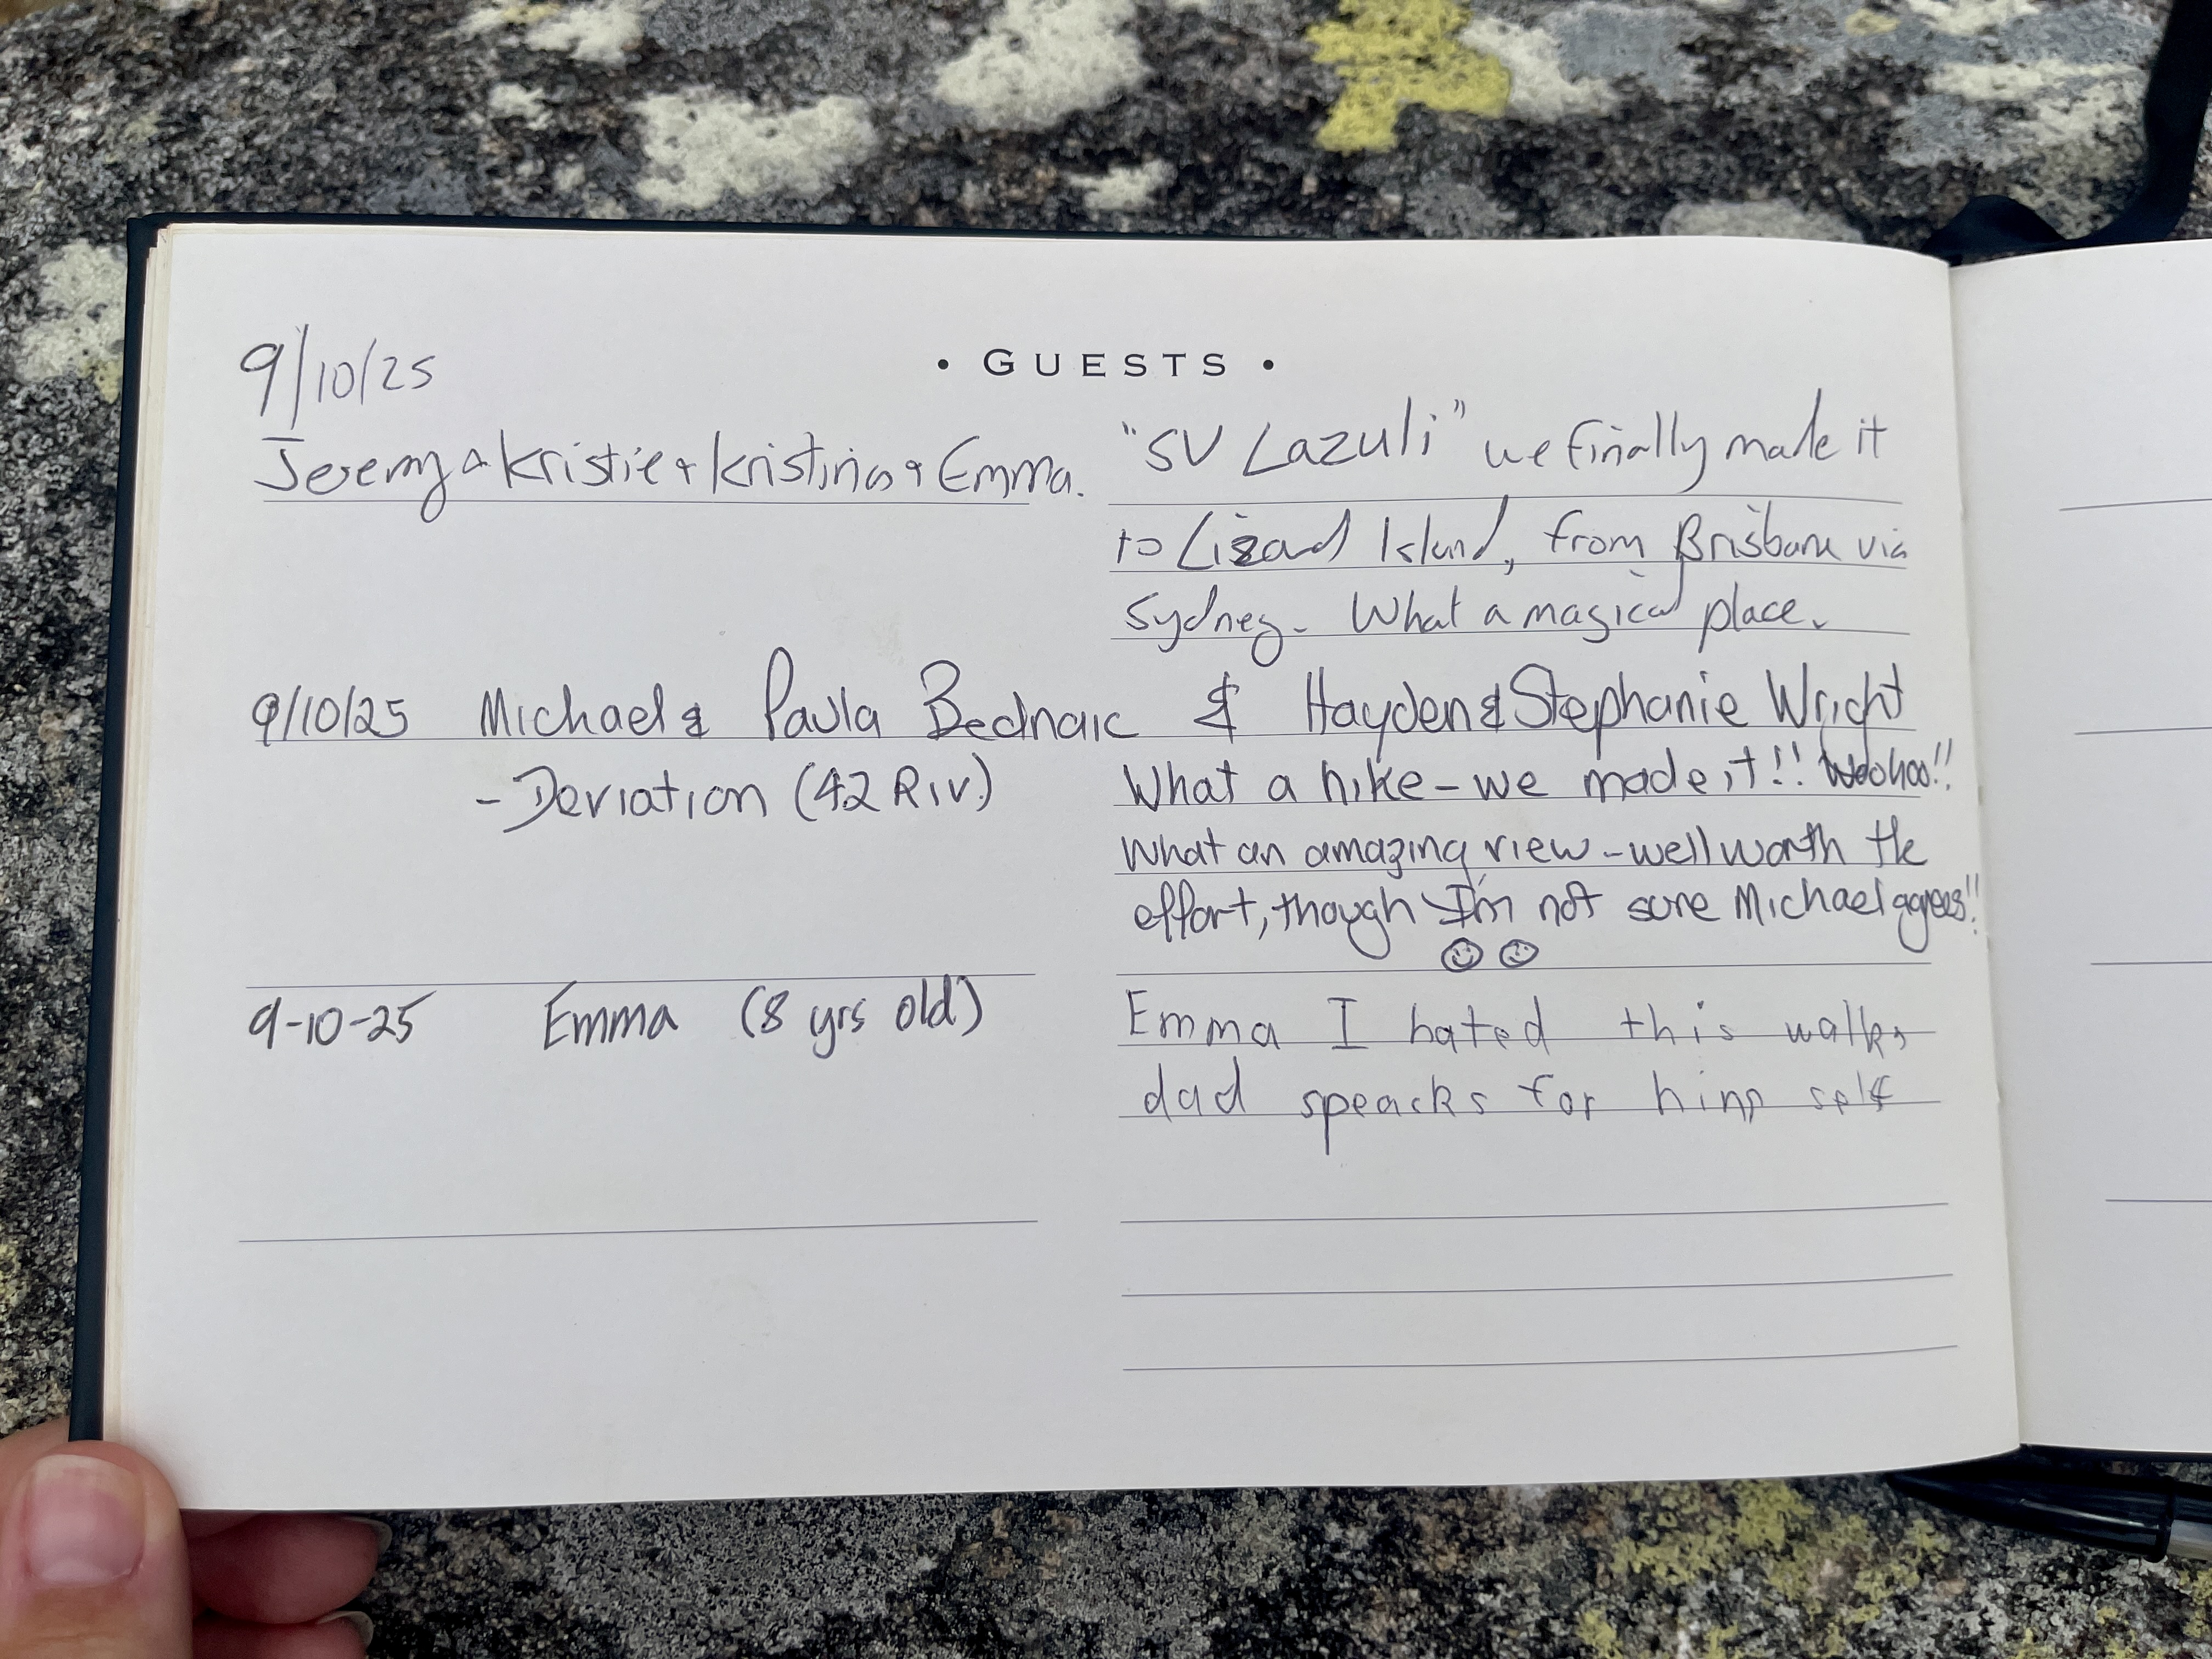 9/10/25
• GUESTS •
Jeremy & Kristie & Kristina & Emma.
"SV Lazuli" we finally made it
to Lizard Island, from Brisbane via
Sydney. What a magical place.
9/10/25 Michael & Paula Bednaic & Hayden & Stephanie Wright
- Deviation (42 Riv.)
What a hike - we made it!! Woohoo!!
What an amazing view - well worth the
effort, though I'm not sure Michael agrees!!
☺ ☺
9-10-25 Emma (8 yrs old)
Emma I hated this walk,
dad speacks for him self